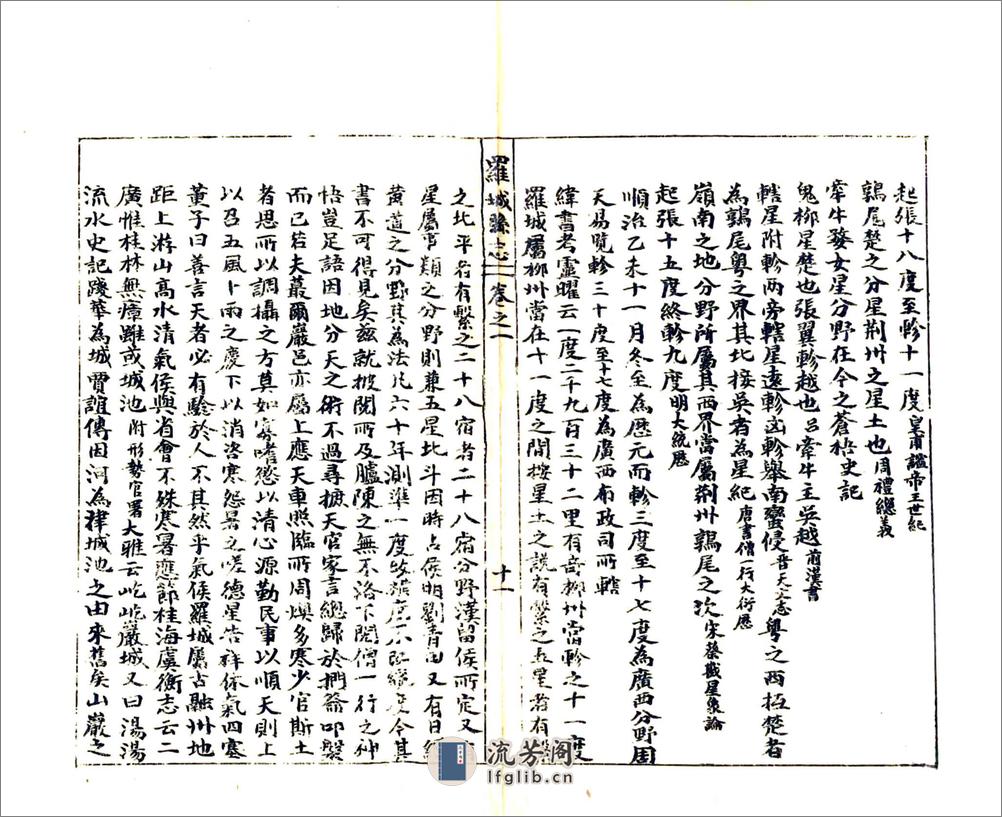 起張十八度至軫十一度皇甫謐帝王世紀
鶉尾楚之分星荆州之星土也周禮總義
牽牛婺女星分野在今之蒼梧史記
鬼柳星楚也張翼軫越也呂牽牛主吳越前漢書
轄星附軫兩旁轄星遠軫凶軫舉南蠻侵晋天文志粤之西極楚者
為鶉尾粤之界其北接吳者為星紀唐書僧一行大衍歷
嶺南之地分野所屬其西界當屬荆州鶉尾之次宋蔡戡星象論
起張十五度終軫九度明大統歷
順治乙未十一月冬至為歷元而軫三度至十七度為廣西分野周
天易覽軫三十度至十七度為廣西布政司所轄
緯書考靈曜云一度二千九百三十二里有奇柳州當軫之十一度
羅城屬柳州當在十一度之間按星土之說有繫之五星者有
羅城縣志
卷之一
十一
之北平者有繫之二十八宿者二十八宿分野漢留侯所定又
星屬事類之分野則兼五星北斗因時占侯明劉青田又有日
黃道之分野其為法凡六十年測準一度今其
書不可得見矣茲就披閱所及臚陳之無不洛下閎僧一行之神
悟豈足語因地分天之術不過尋摭天官家言總歸於捫籥叩槃
而已若夫蕞爾巖邑亦屬上應天車照臨所周燠多寒少官斯土
者思所以調攝之方莫如寡嗜慾以清心源勤民事以順天則上
以召五風十雨之慶下以消洛寒怨暑之嗟德星告祥休氣四塞
董子曰善言天者必有驗於人不其然乎氣侯羅城屬古融州地
距上游山高水清氣侯與省會不殊寒暑應節桂海虞衡志云二
廣惟桂林無瘴雖或城池附形勢官署大雅云屹屹巖城又曰湯湯
流水史記踐華為城賈誼傳因河為津城池之由來舊矣山巖之
流芳阁
lfglib.cn